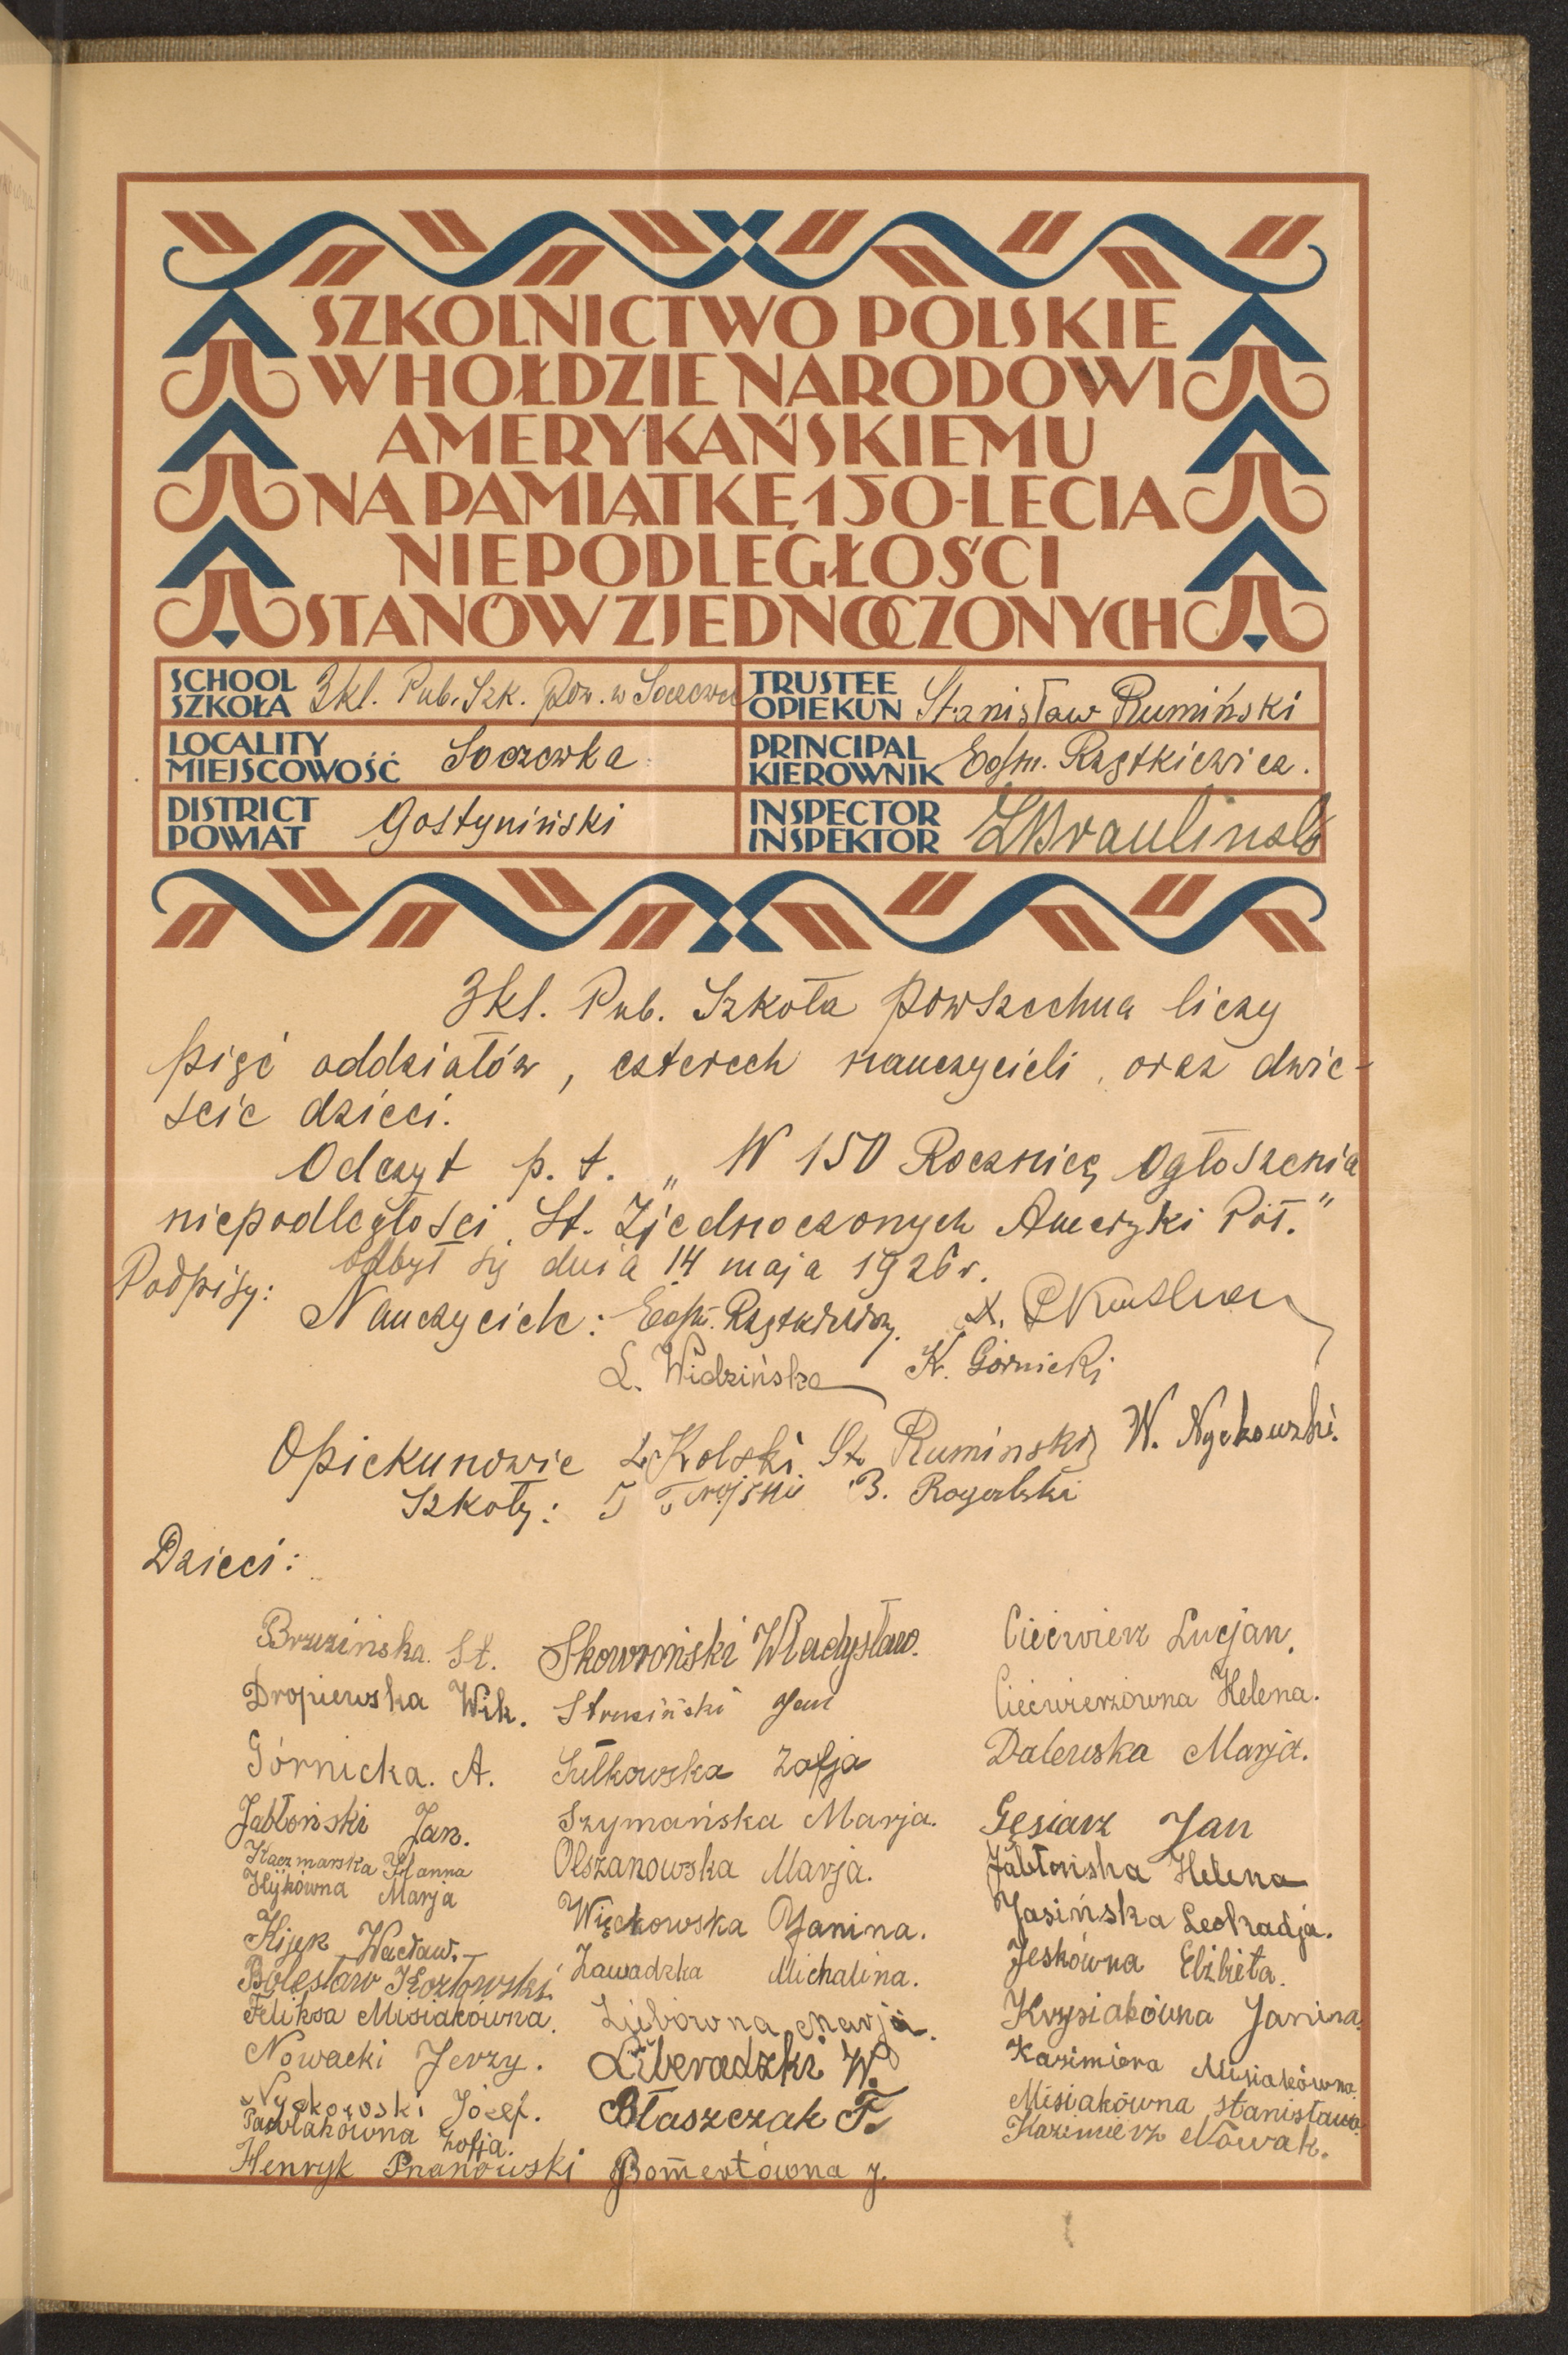 SZKOLNICTWO POLSKIE
W HOŁDZIE NARODOWI
AMERYKAŃSKIEMU
NA PAMIĄTKĘ 150-LECIA
NIEPODLEGŁOŚCI
STANÓW ZJEDNOCZONYCH
SCHOOL
SZKOŁA 3kl. Pub. Szk. Pow. w Soczewce
TRUSTEE
OPIEKUN Stanisław Rumiński
LOCALITY
MIEJSCOWOŚĆ Soczewka
PRINCIPAL
KIEROWNIK Edm. Rzątkiewicz.
DISTRICT
POWIAT Gostyniński
INSPECTOR
INSPEKTOR
3kl. Pub. Szkoła powszechna liczy
pięć oddziałów, czterech nauczycieli, oraz dwie-
ście dzieci.
Odczyt p. t. „W 150 Rocznicę Ogłoszenia
niepodległości St. Zjednoczonych Ameryki Poł."
odbył się dnia 14 maja 1926 r.
Podpisy:
Nauczyciele: Edm. Rzątkiewicz.
L. Widzińska K. Górnicki
Opiekunowie Kolski St. Rumiński W. Nyckowski.
Szkoły: B. Rogalski
Dzieci:
Brzezińska. St. Skowroński Władysław. Ciećwierz Lucjan.
Dropiewska Wik. Strusiński Jan Ciećwierzówna Helena.
Górnicka. A. Sułkowska Zofja Dalewska Marja.
Jabłoński Jan. Szymańska Marja. Gęsiarz Jan
Kaczmarska Hanna Olszanowska Marja. Jabłońska Helena
Kijkówna Marja Więckowska Janina. Jasińska Leokadja.
Kijek Wacław. Zawadzka Michalina. Jeskówna Elżbieta.
Bolesław Kozłowski Marja. Krysiakówna Janina.
Feliksa Misiakówna. Liberadzki W. Kazimiera Misiakówna.
Nowacki Jerzy. Błaszczak F. Misiakówna Stanisława.
Nyckowski Józef. Bomertówna J. Kazimierz Nowak.
Pawlakówna Zofja.
Henryk Pranowski